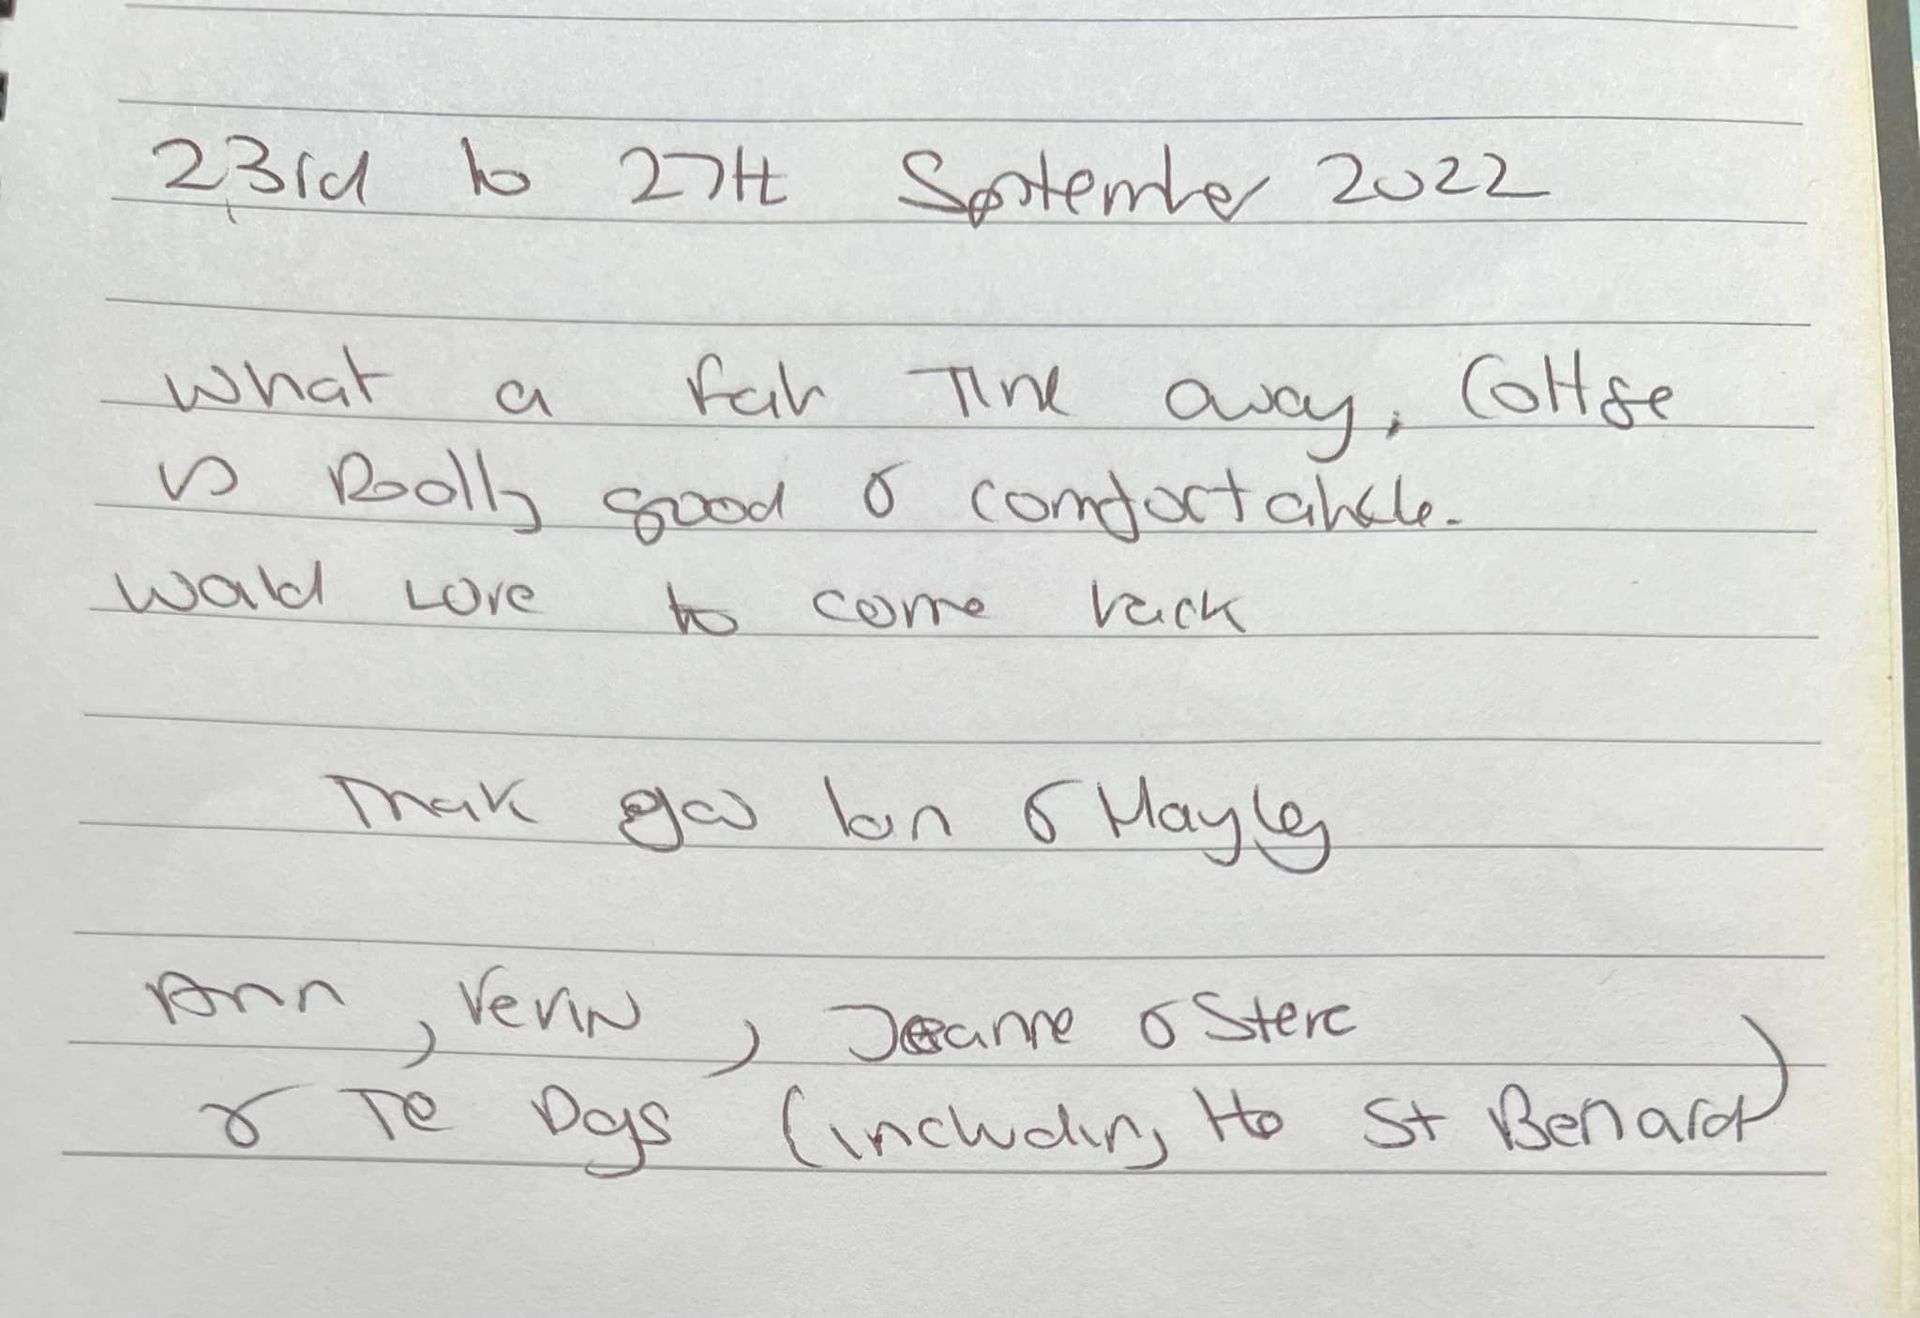 23rd to 27th September 2022
What a fab Time away, Cottge
is Really good & comfortable.
Would Love to come back
Thank you Ian & Hayley
Ann, Kevin, Joanne & Steve
& The Dogs (including the St Benard)